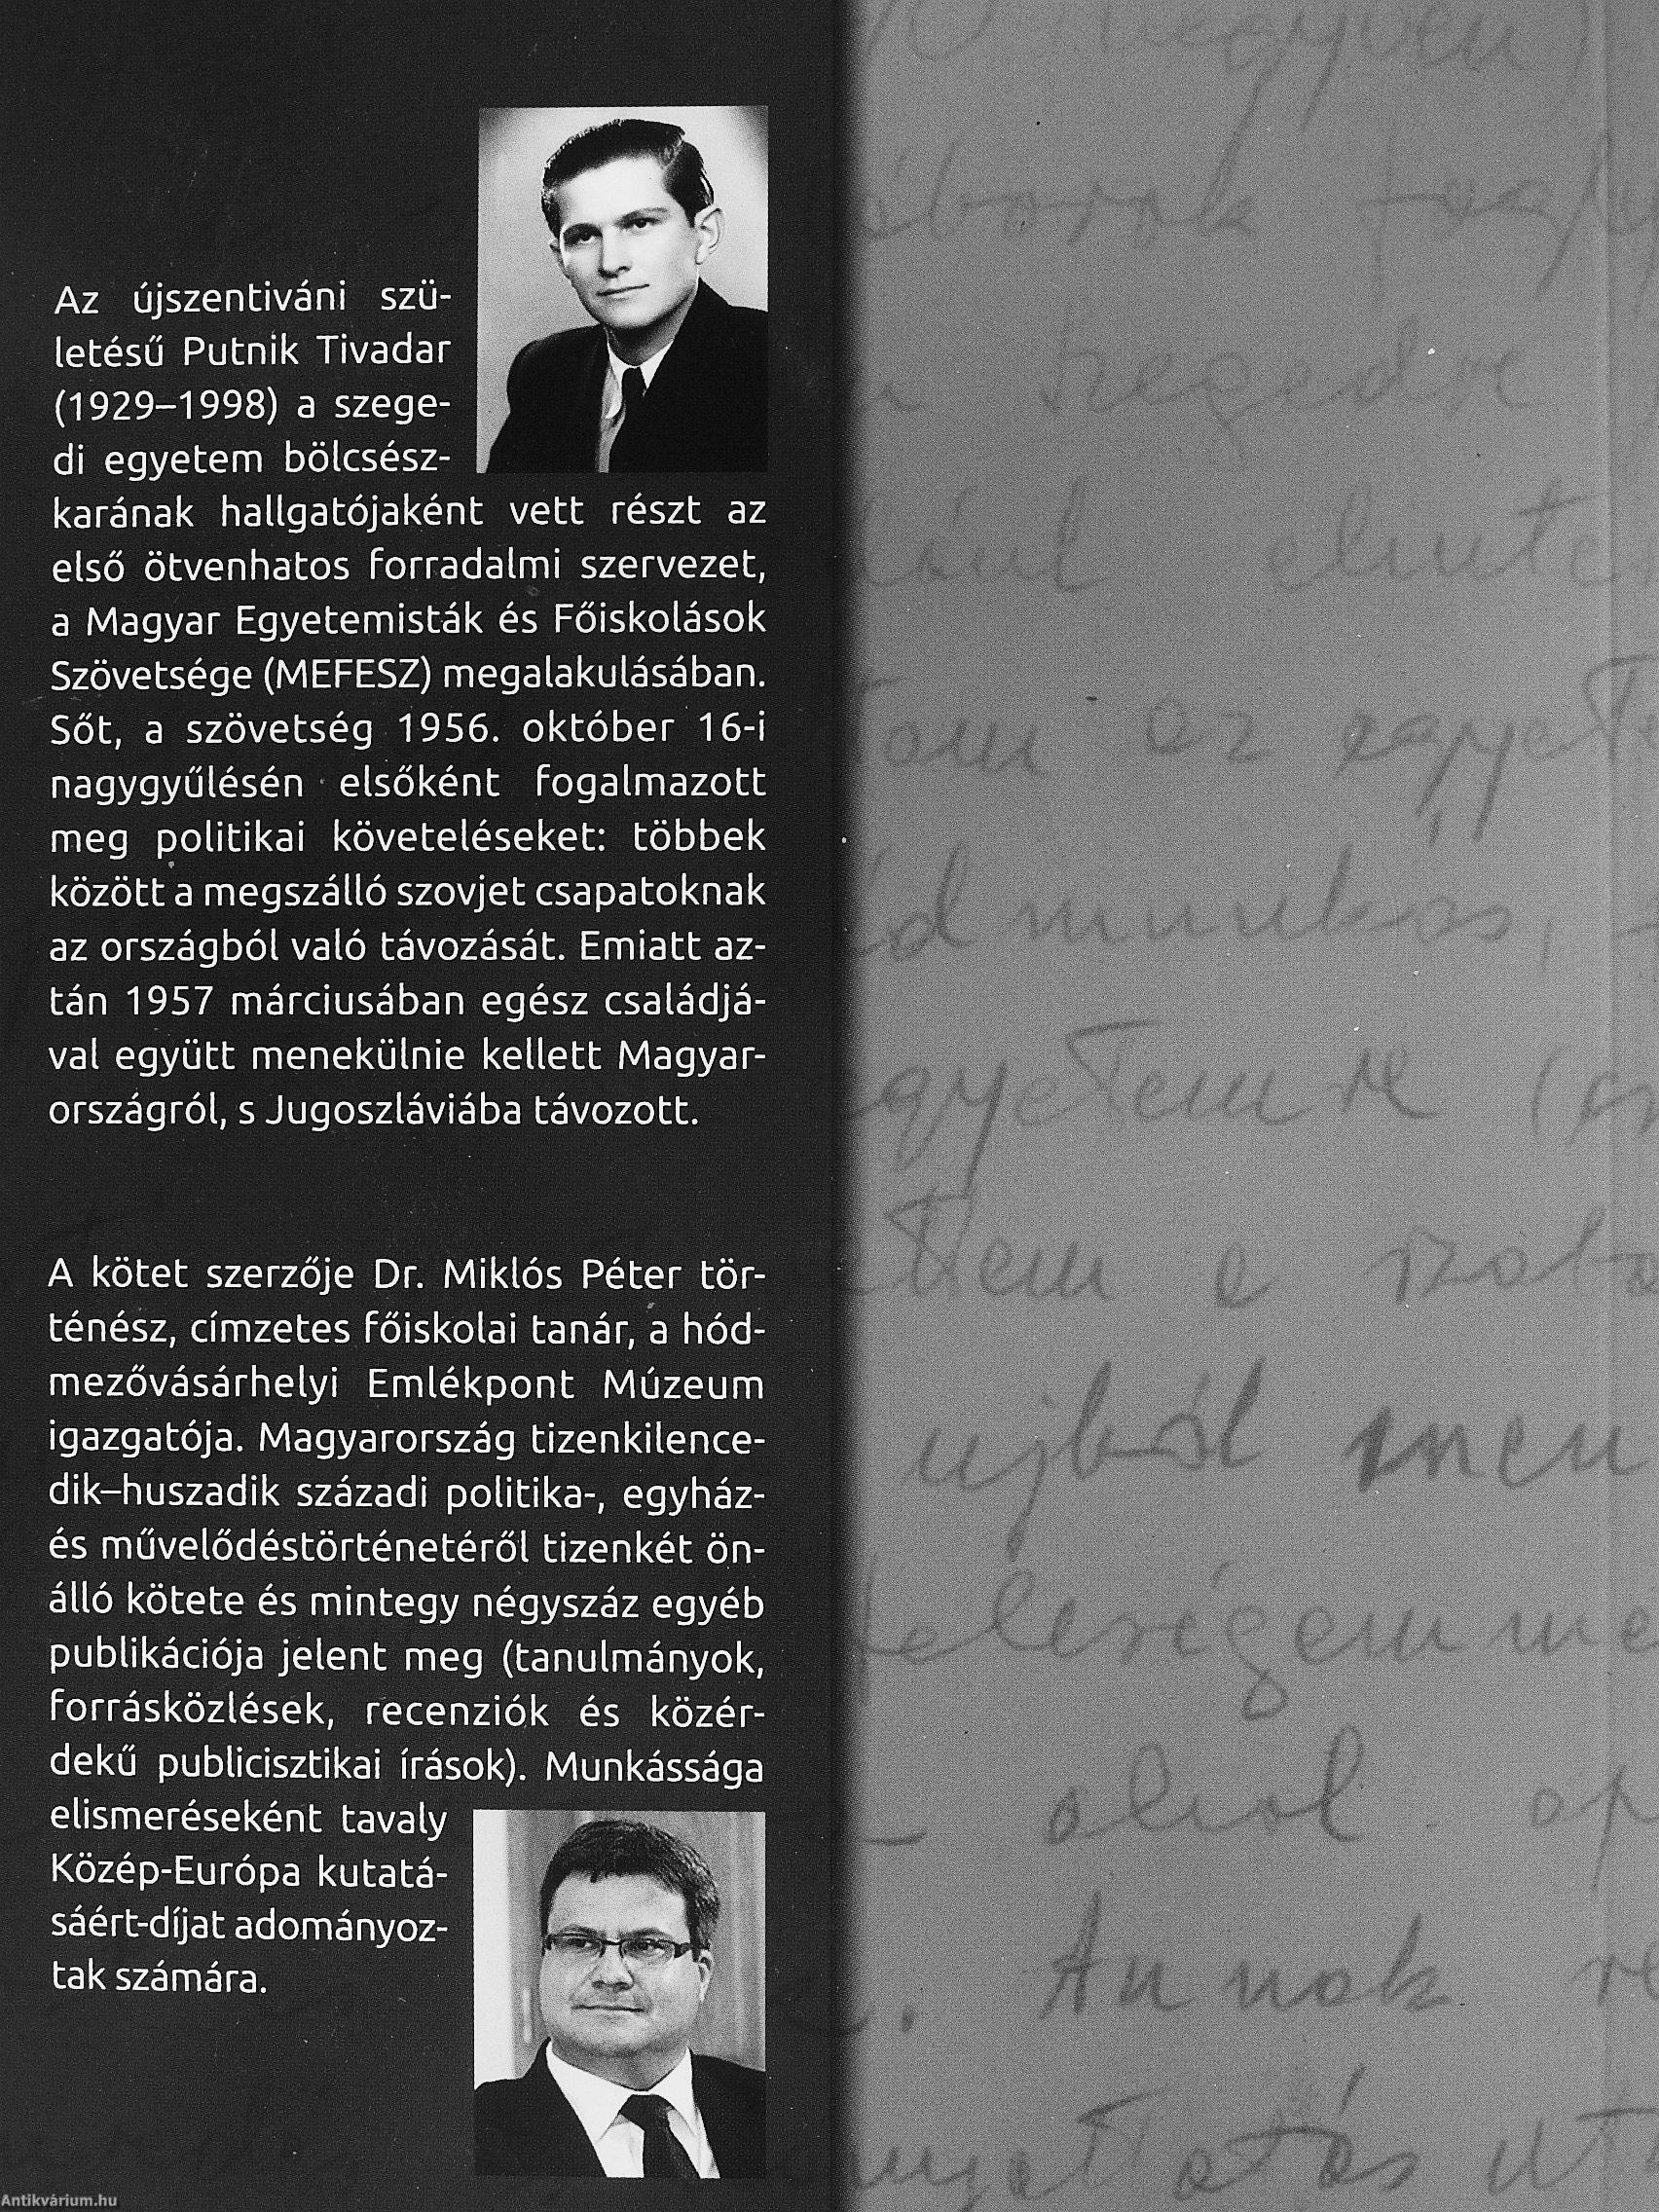 Az újszentiváni szü-
letésű Putnik Tivadar
(1929–1998) a szege-
di egyetem bölcsész-
karának hallgatójaként vett részt az
első ötvenhatos forradalmi szervezet,
a Magyar Egyetemisták és Főiskolások
Szövetsége (MEFESZ) megalakulásában.
Sőt, a szövetség 1956. október 16-i
nagygyűlésén elsőként fogalmazott
meg politikai követeléseket: többek
között a megszálló szovjet csapatoknak
az országból való távozását. Emiatt az-
tán 1957 márciusában egész családjá-
val együtt menekülnie kellett Magyar-
országról, s Jugoszláviába távozott.
A kötet szerzője Dr. Miklós Péter tör-
ténész, címzetes főiskolai tanár, a hód-
mezővásárhelyi Emlékpont Múzeum
igazgatója. Magyarország tizenkilence-
dik–huszadik századi politika-, egyház-
és művelődéstörténetéről tizenkét ön-
álló kötete és mintegy négyszáz egyéb
publikációja jelent meg (tanulmányok,
forrásközlések, recenziók és közér-
dekű publicisztikai írások). Munkássága
elismeréseként tavaly
Közép-Európa kutatá-
sáért-díjat adományoz-
tak számára.
az egyete
munkás,
egyetemre
ujból
Annak
Antikvárium.hu